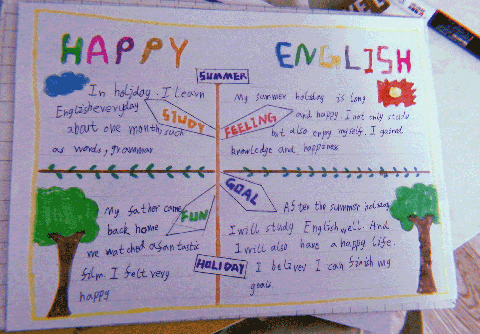 HAPPY ENGLISH
SUMMER
In holiday. I learn
English everyday
about one month, such
as words, grammar
STUDY
My summer holiday is long
and happy. I not only study
but also enjoy myself. I gained
knowledge and happiness
FEELING
My father came
back home
we watched a fantastic
film. I felt very
happy
FUN
GOAL
After the summer holiday
I will study English well. And
I will also have a happy life.
I believe I can finish my
goals
HOLIDAY